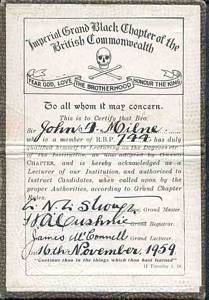 Imperial Grand Black Chapter of the
British Commonwealth
FEAR GOD, LOVE THE BROTHERHOOD HONOUR THE KING
To all whom it may concern.
This is to Certify that Bro:
Sir John D. Milne
who is a member of R.B.P. 744 has duly
qualified himself in Lecturing in the Degrees of
of the Institution, as also adopted by GRAND
CHAPTER, and is hereby acknowledged as a
Lecturer of our Institution, and authorised to
Instruct Candidates, when called upon by the
proper Authorities, according to Grand Chapter
Rules.
Grand Master
Grand Registrar.
James McConnell Grand Lecturer.
16th November, 1959
"Continue thou in the things which thou hast learned"
II Timothy